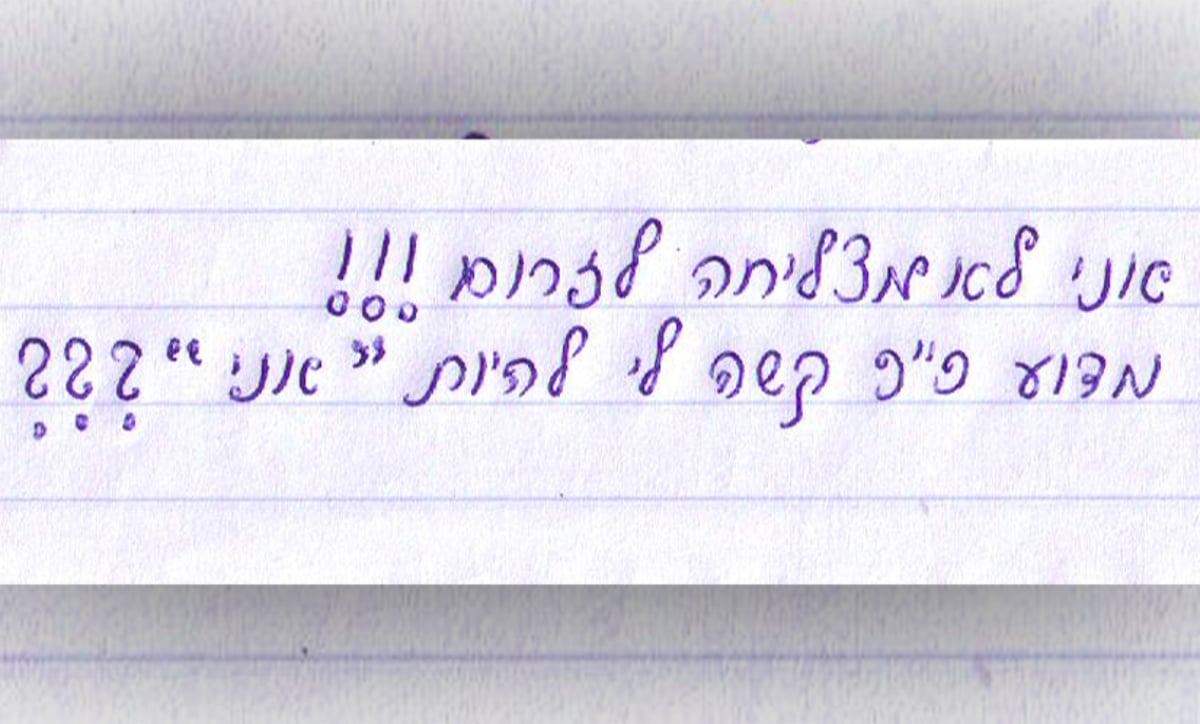 אני לא מצליחה לזרום !!!
מדוע פ"פ קשה לי להיות "אני" ???